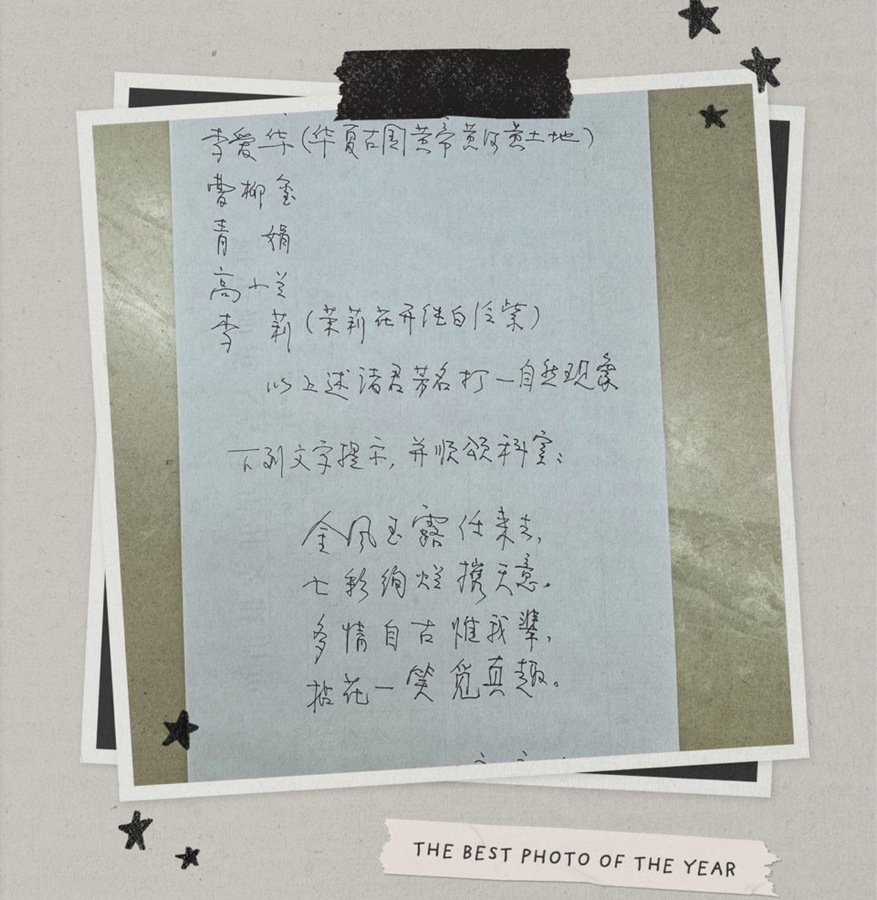 李爱华(华夏古国黄帝黄河黄土地)
曹柳
青 娟
高小兰
李 莉(茉莉花开继白泛紫)
以上述诸君芳名打一自然现象
下列文字提示,并顺颂科室:
金风玉露任来去,
七彩绚烂携天意。
多情自古惟我辈,
拈花一笑觅真趣。
THE BEST PHOTO OF THE YEAR